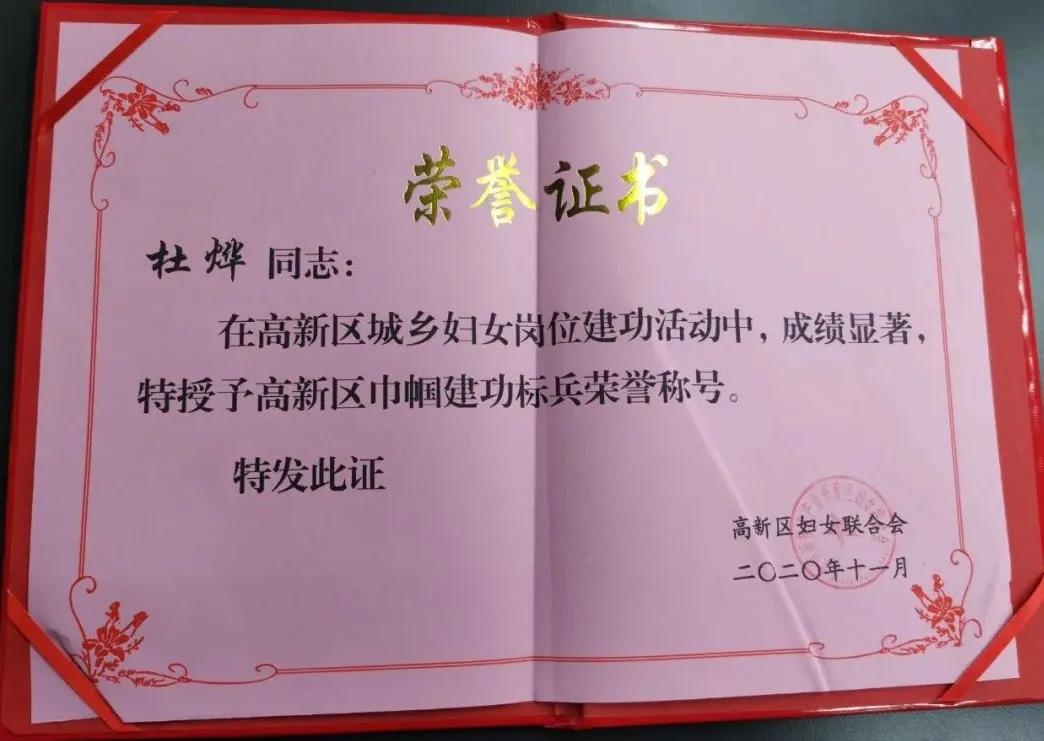 荣誉证书
杜烨 同志：
在高新区城乡妇女岗位建功活动中，成绩显著，
特授予高新区巾帼建功标兵荣誉称号。
特发此证
高新区妇女联合会
二〇二〇年十一月